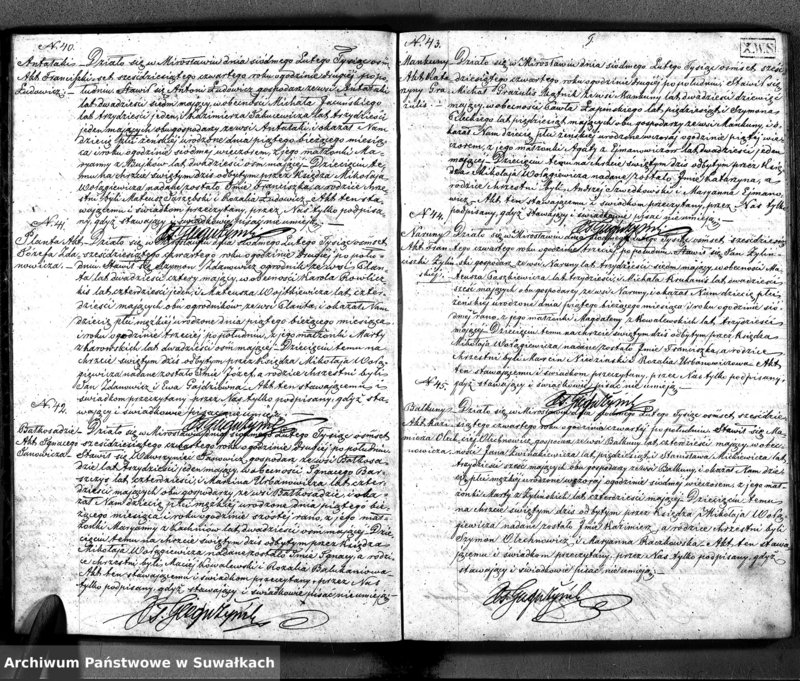 N. 40.
Antalaki
Akt Franciszki
Ludowicz.
Działo się w Mirosławiu dnia siódmego Lutego Tysiąc ośm
set sześćdziesiątego czwartego roku o godzinie drugiej po po
łudniu. Stawił się Antoni Ludowicz gospodarz ze wsi Antalaki
lat dwadzieścia siedm mający, w obecności Michała
lat trzydzieści jeden, i Kazimierza lat trzydzieści
jeden, mających obu gospodarzy, ze wsi Antalaki i okazał Nam
dziecię płci żeńskiej urodzone dnia piątego bieżącego miesią
ca i roku o godzinie siódmej wieczorem, z jego małżonki Ma
ryanny z lat dwadzieścia ośm mającej.- Dziecięciu te
mu na chrzcie świętym dziś odbytym przez Księdza Mikołaja
Wołągiewicza nadane zostało Imie Franciszka, a rodzice chrze
stni byli Mateusz i Rozalia Ludowicz. Akt ten sta
wającemu i świadkom przeczytany, przez Nas tylko podpisa
ny, gdyż stawający i świadkowie pisać nieumieją.-
N. 41.
Planta Akt
Józefa Zda
nowicza.-
Działo się w Mirosławiu dnia siódmego Lutego Tysiąc ośmset
sześćdziesiątego czwartego roku o godzinie drugiej po połu
dniu. Stawił się Szymon Zdanowicz ogrodnik ze wsi Plan
ta, lat dwadzieścia cztery mający, w obecności Karola
lat czterdzieści jeden, i Mateusza Wojtkiewicza lat czter
dzieści mających obu ogrodników ze wsi Planta, i okazał Nam
dziecię płci męzkiej urodzone dnia piątego bieżącego miesiąca
i roku o godzinie trzeciej po południu, z jego małżonki Marty
lat dwadzieścia ośm mającej.- Dziecięciu temu na
chrzcie świętym dziś odbytym przez Księdza Mikołaja Woła
giewicza nadane zostało Imie Józef, a rodzice chrzestni byli
Jan Zdanowicz i Ewa. Akt ten stawającemu i
świadkom przeczytany przez Nas tylko podpisany, gdyż sta
wający i świadkowie pisać nieumieją.-
N. 42.
Balkosadzie
Akt Ignacego
Janowicza.-
Działo się w Mirosławiu dnia siódmego Lutego Tysiąc ośmset
sześćdziesiątego czwartego roku o godzinie drugiej po południu.
Stawił się Wawrzyniec Janowicz, gospodarz ze wsi Balkosa
dzie, lat trzydzieści jeden mający, w obecności Ignacego
lat czterdzieści, i Marcina Urbanowicza lat czter
dzieści mających, obu gospodarzy, ze wsi Balkosadzie, i oka
zał Nam dziecię płci męzkiej urodzone dnia piątego bie
żącego miesiąca i roku o godzinie szóstej rano, z jego mał
żonki Maryanny z lat dwadzieścia ośm mającej. Dziecię
ciu temu na chrzcie świętym dziś odbytym przez Księdza
Mikołaja Wołągiewicza nadane zostało Imie Ignacy, a rodzi
ce chrzestni byli Maciej Kowalewski i Rozalia.
Akt ten stawającemu i świadkom przeczytany, przez Nas
tylko podpisany, gdyż stawający i świadkowie pisać nieumieją.-
9
X.W.S.
N. 43.
Mankuny
Akt Kata
rzyny Gra
żulis.-
Działo się w Mirosławiu dnia siódmego Lutego Tysiąc ośmset sześć
dziesiątego czwartego roku o godzinie drugiej po południu. Stawił się
Michał Grażulis ze wsi Mankuny lat dwadzieścia dziewięć
mający, w obecności Pawła Łapińskiego lat pięćdziesiąt i Szymona
lat pięćdziesiąt mających obu gospodarzy ze wsi Mankuny, i o
kazał Nam dziecię płci żeńskiej urodzone wczoraj o godzinie piątej wie
czorem, z jego małżonki Agaty z lat dwadzieścia jeden
mającej.- Dziecięciu temu na chrzcie świętym dziś odbytym przez Księ
dza Mikołaja Wołągiewicza nadane zostało Imie Katarzyna, a
rodzice chrzestni byli Andrzej i Maryanna
Akt ten stawającemu i świadkom przeczytany, przez Nas tylko
podpisany, gdyż stawający i świadkowie pisać nieumieją.-
N. 44.
Naruny
Akt Fran
ciszki Żyliń
skiej.-
Działo się w Mirosławiu dnia siódmego Lutego Tysiąc ośmset sześćdziesią
tego czwartego roku o godzinie trzeciej po południu. Stawił się Jan Żyliń
ski gospodarz ze wsi Naruny lat trzydzieści siedm mający, w obecności Ma
teusza lat trzydzieści, i Michała lat dwadzieścia
sześć mających obu gospodarzy, ze wsi Naruny, i okazał Nam dziecię płci
żeńskiej urodzone dnia piątego bieżącego miesiąca i roku o godzinie siód
mej rano, z jego małżonki Magdaleny z Kowalewskich lat trzydzieści
mającej.- Dziecięciu temu na chrzcie świętym dziś odbytym przez Księdza
Mikołaja Wołągiewicza, nadane zostało Imie Franciszka, a rodzice
chrzestni byli Marcin i Rozalia Urbanowiczowa. Akt
ten stawającemu i świadkom przeczytany, przez Nas tylko podpisany,
gdyż stawający i świadkowie pisać nieumieją.-
N. 45.
Balkuny
Akt Kazi
mierza Olech
nowicza.
Działo się w Mirosławiu dnia siódmego Lutego Tysiąc ośmset sześćdzie
siątego czwartego roku o godzinie czwartej po południu. Stawił się Ma
ciej Olechnowicz gospodarz ze wsi Balkuny, lat czterdzieści mający, w obec
ności Jana lat pięćdziesiąt, i Stanisława lat
trzydzieści sześć mających obu gospodarzy ze wsi Balkuny, i okazał Nam dzie
cię płci męzkiej urodzone wczoraj o godzinie siódmej wieczorem, z jego mał
żonki Marty z Żylińskich lat czterdzieści mającej. Dziecięciu temu
na chrzcie świętym dziś odbytym przez Księdza Mikołaja Woła
giewicza nadane zostało Imie Kazimierz, a rodzice chrzestni byli
Szymon Olechnowicz i Maryanna. Akt ten stawa
jącemu i świadkom przeczytany, przez Nas tylko podpisany, gdyż
stawający i świadkowie pisać nieumieją.-
Archiwum Państwowe w Suwałkach